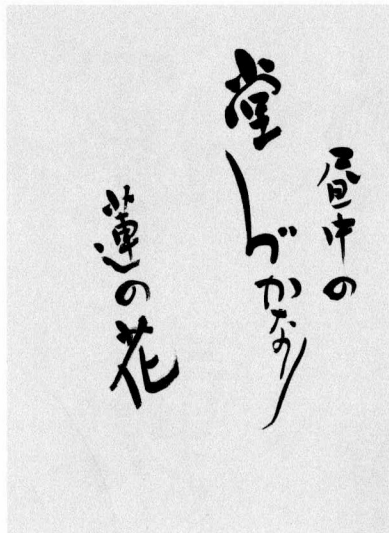 昼中の
堂しづかなり
蓮の花